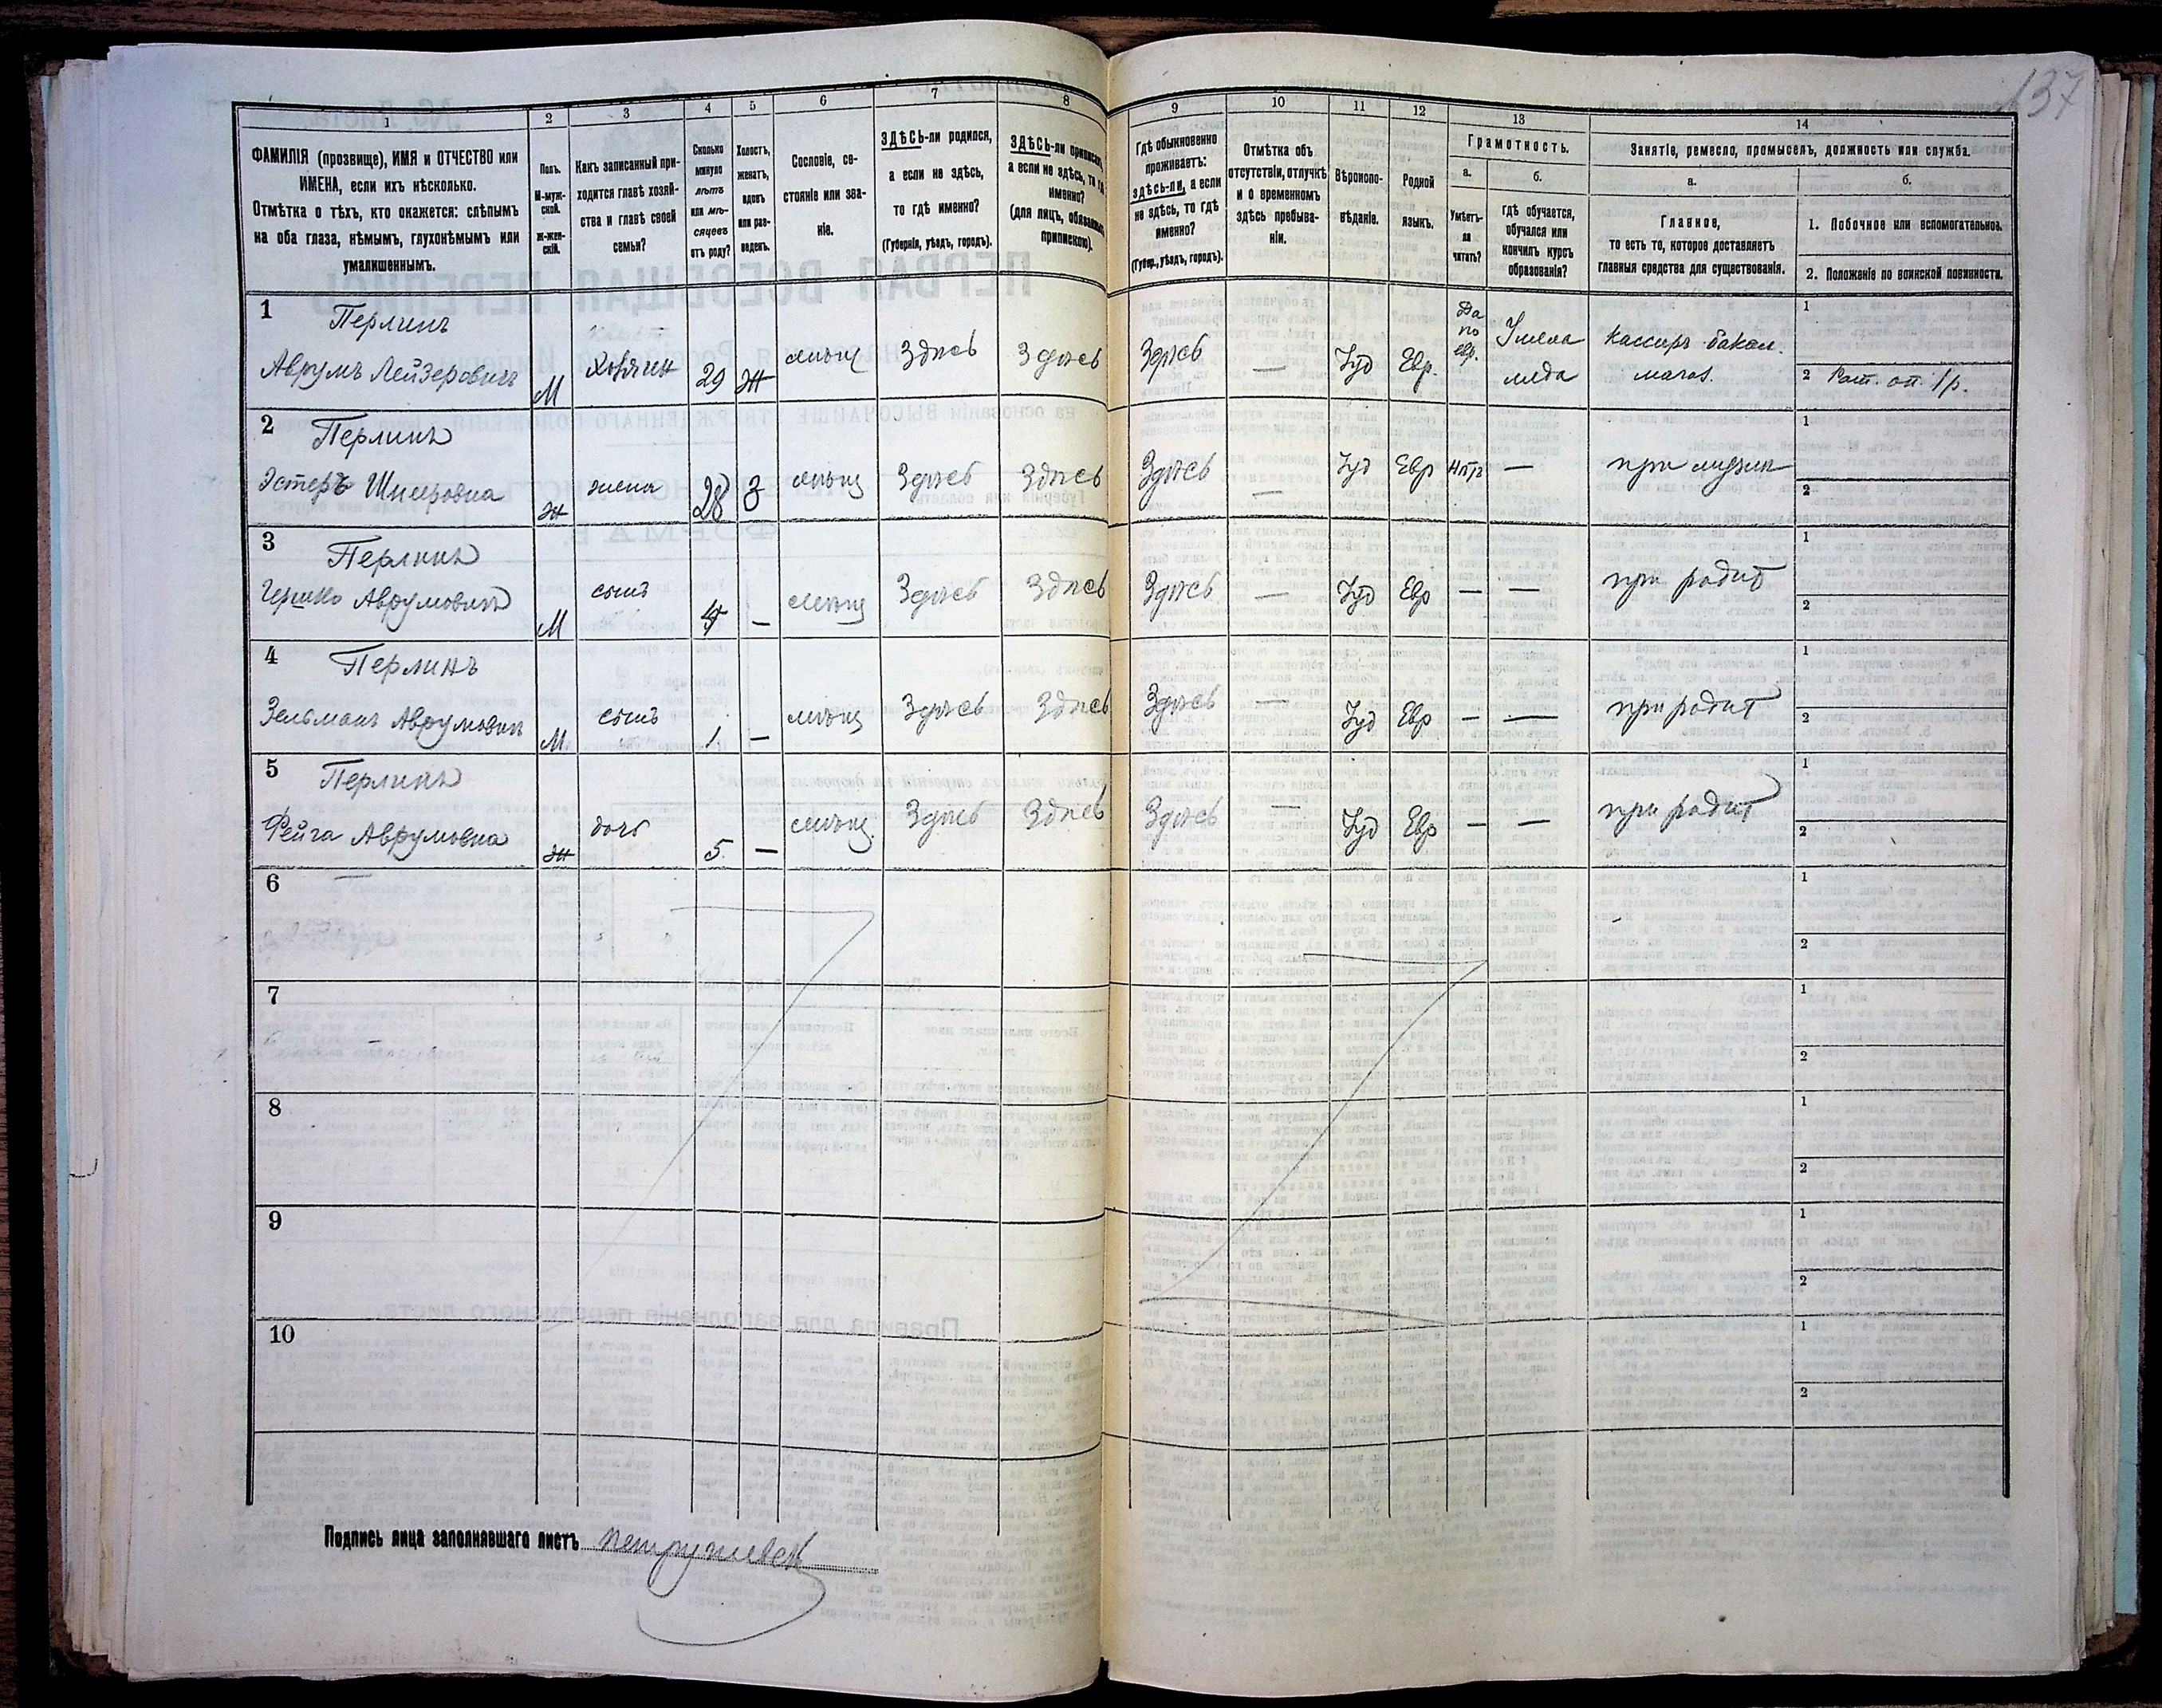 137
1 2 3 4 5 6 7 8 9 10 11 12 13 14
ФАМИЛІЯ (прозвище), ИМЯ и ОТЧЕСТВО или
ИМЕНА, если ихъ нѣсколько.
Отмѣтка о тѣхъ, кто окажется: слѣпымъ
на оба глаза, нѣмымъ, глухонѣмымъ или
умалишеннымъ.
Полъ.
М-муж-
ской.
ж-жен-
скій.
Какъ записанный при-
ходится главѣ хозяй-
ства и главѣ своей
семьи?
Сколько
минуло
лѣтъ
или мѣ-
сяцевъ
отъ роду?
Холостъ,
женатъ,
вдовъ
или раз-
веденъ.
Сословіе, со-
стояніе или зва-
ніе.
ЗДѢСЬ-ли родился,
а если не здѣсь,
то гдѣ именно?
(Губернія, уѣздъ, городъ).
ЗДѢСЬ-ли приписанъ,
а если не здѣсь, то гдѣ
именно?
(для лицъ, обязанныхъ
припискою).
Гдѣ обыкновенно
проживаетъ:
здѣсь-ли, а если
не здѣсь, то гдѣ
именно?
(Губер., уѣздъ, городъ).
Отмѣтка объ
отсутствіи, отлучкѣ
и о временномъ
здѣсь пребыва-
ніи.
Вѣроиспо-
вѣданіе.
Родной
языкъ.
Грамотность.
а. б.
Умѣетъ-
ли
читать?
гдѣ обучается,
обучался или
кончилъ курсъ
образованія?
Занятіе, ремесло, промыселъ, должность или служба.
а. б.
Главное,
то есть то, которое доставляетъ
главныя средства для существованія.
1. Побочное или вспомогательное.
2. Положеніе по воинской повинности.
1 Перлинъ
Аврумъ Лейзеровичъ М Хозяинъ 29 Ж мѣщ Здѣсь Здѣсь Здѣсь — Іуд Евр. Да по евр. кассиръ бакал. 1
магаз. 2 Рат. оп. 1 р.
2 Перлинъ
Эстеръ ж жена 28 З мѣщ Здѣсь Здѣсь Здѣсь — Іуд Евр нѣтъ — при мужѣ 1
2
3 Перлинъ
Гершко Аврумовичъ М сынъ 4 — мѣщ Здѣсь Здѣсь Здѣсь — Іуд Евр — — при родит 1
2
4 Перлинъ
Зельманъ Аврумовичъ М сынъ 1 — мѣщ Здѣсь Здѣсь Здѣсь — Іуд Евр — — при родит 1
2
5 Перлинъ
Фейга Аврумовна ж дочь 5 — мѣщ. Здѣсь Здѣсь Здѣсь — Іуд Евр — — при родит 1
2
6 1
2
7 1
2
8 1
2
9 1
2
10 1
2
Подпись лица заполнявшаго листъ